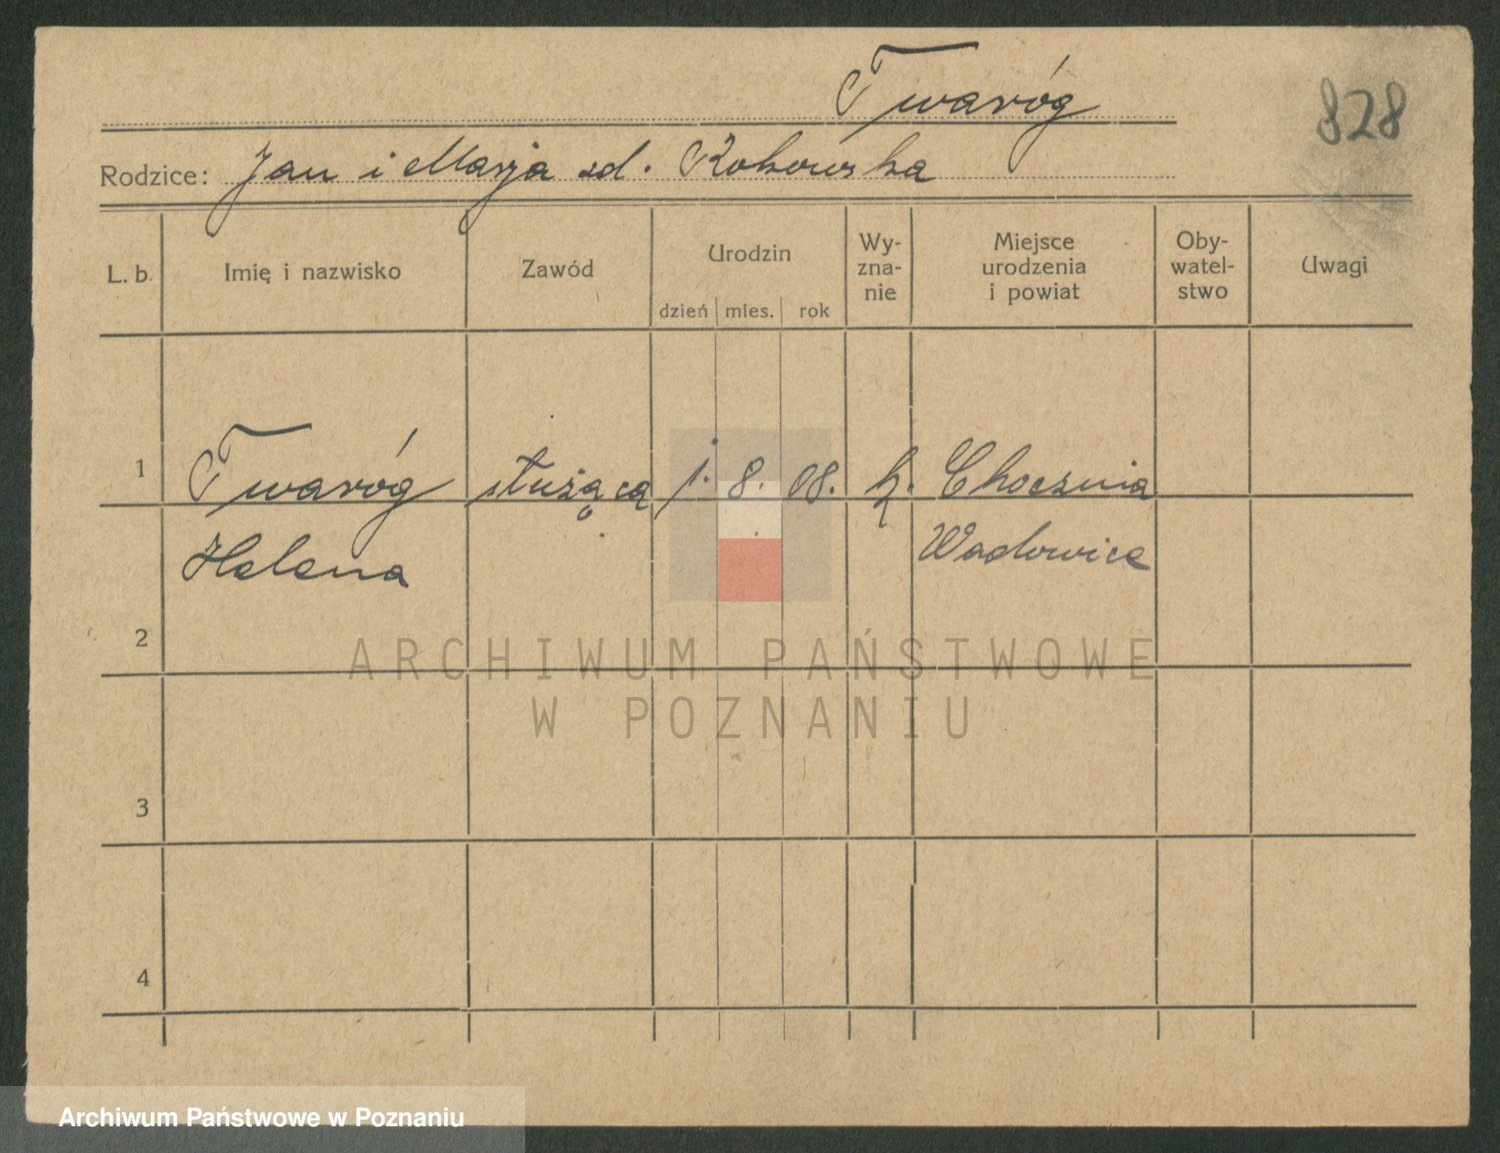 Twaróg
828
Rodzice: Jan i Marja zd. Kokowska
L. b.
Imię i nazwisko
Zawód
Urodzin
dzień mies. rok
Wy-
zna-
nie
Miejsce
urodzenia
i powiat
Oby-
watel-
stwo
Uwagi
1 Twaróg służąca 1. 8. 08. k. Chocznia
Helena Wadowice
2
ARCHIWUM PAŃSTWOWE
W POZNANIU
3
4
Archiwum Państwowe w Poznaniu